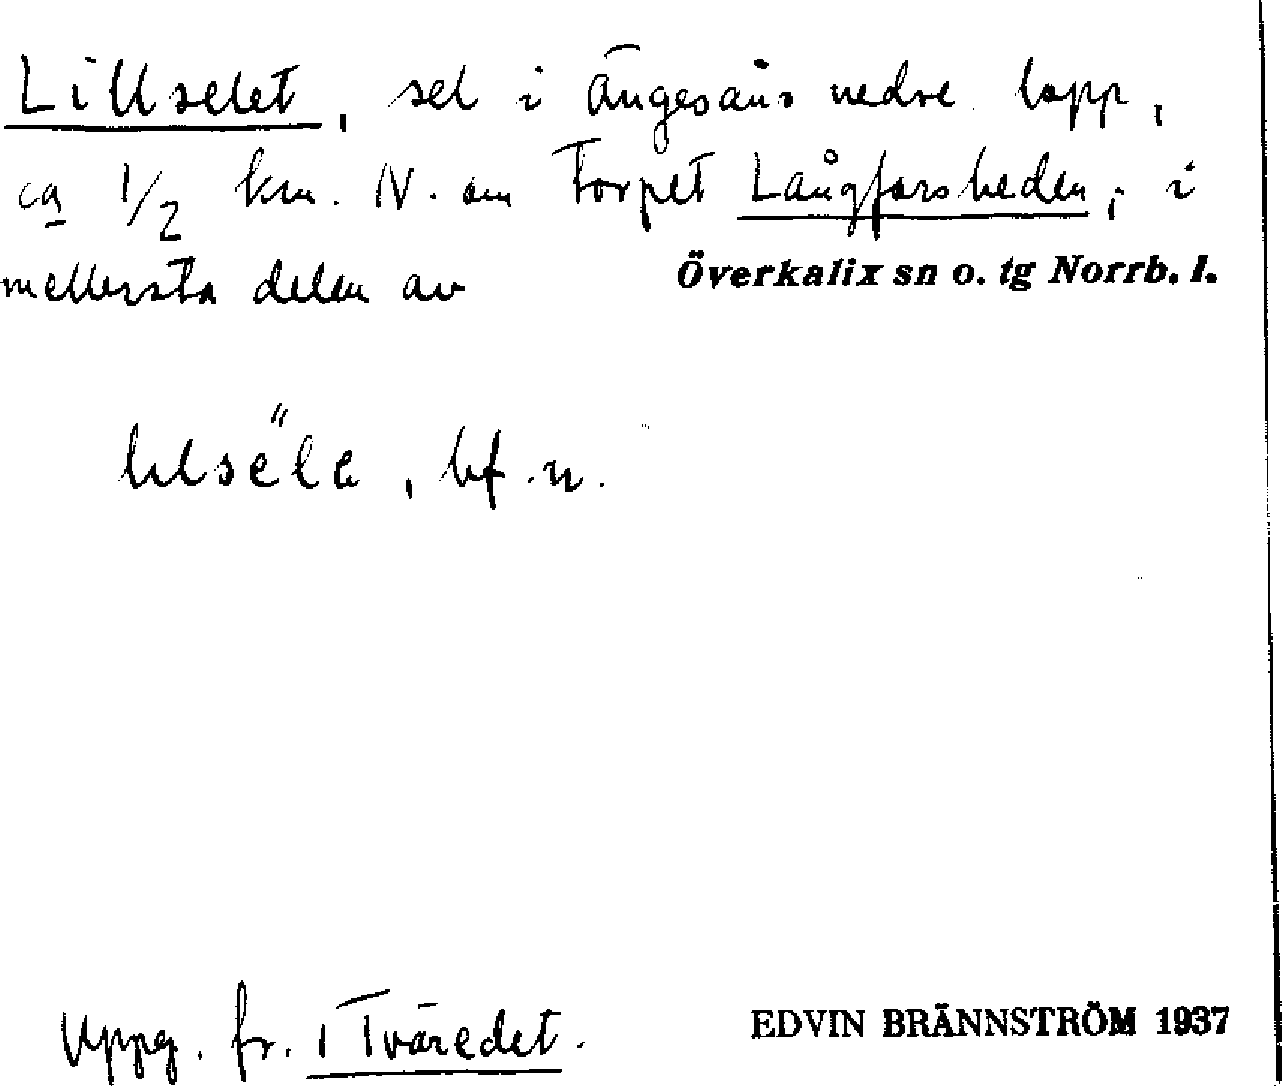 Lillselet, sel i Ängesåns nedre lopp,
ca 1/2 km. N. om torpet Långforsheden, i
mellersta delen av Överkalix sn o. tg Norrb. l.
bf. n.
Uppg. fr. Tväredet.
EDVIN BRÄNNSTRÖM 1937